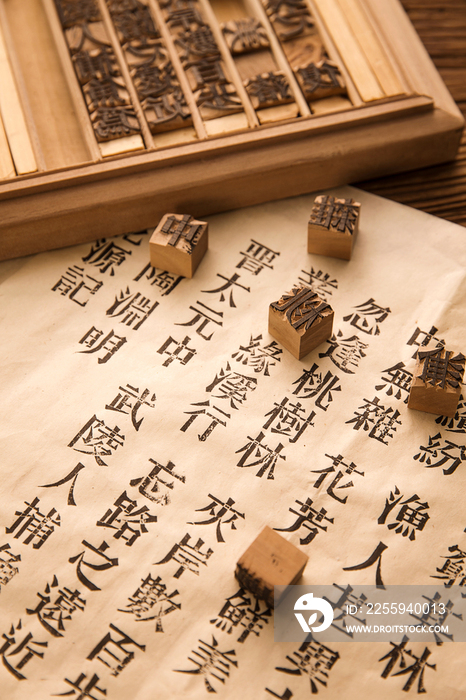 源記
陶淵明
晉太元中武陵人捕
業緣溪行忘路之遠近
忽逢桃樹林夾岸數百步
中無雜花芳鮮美
紛漁人異
林
2255940013
WWW.DROITSTOCK.COM